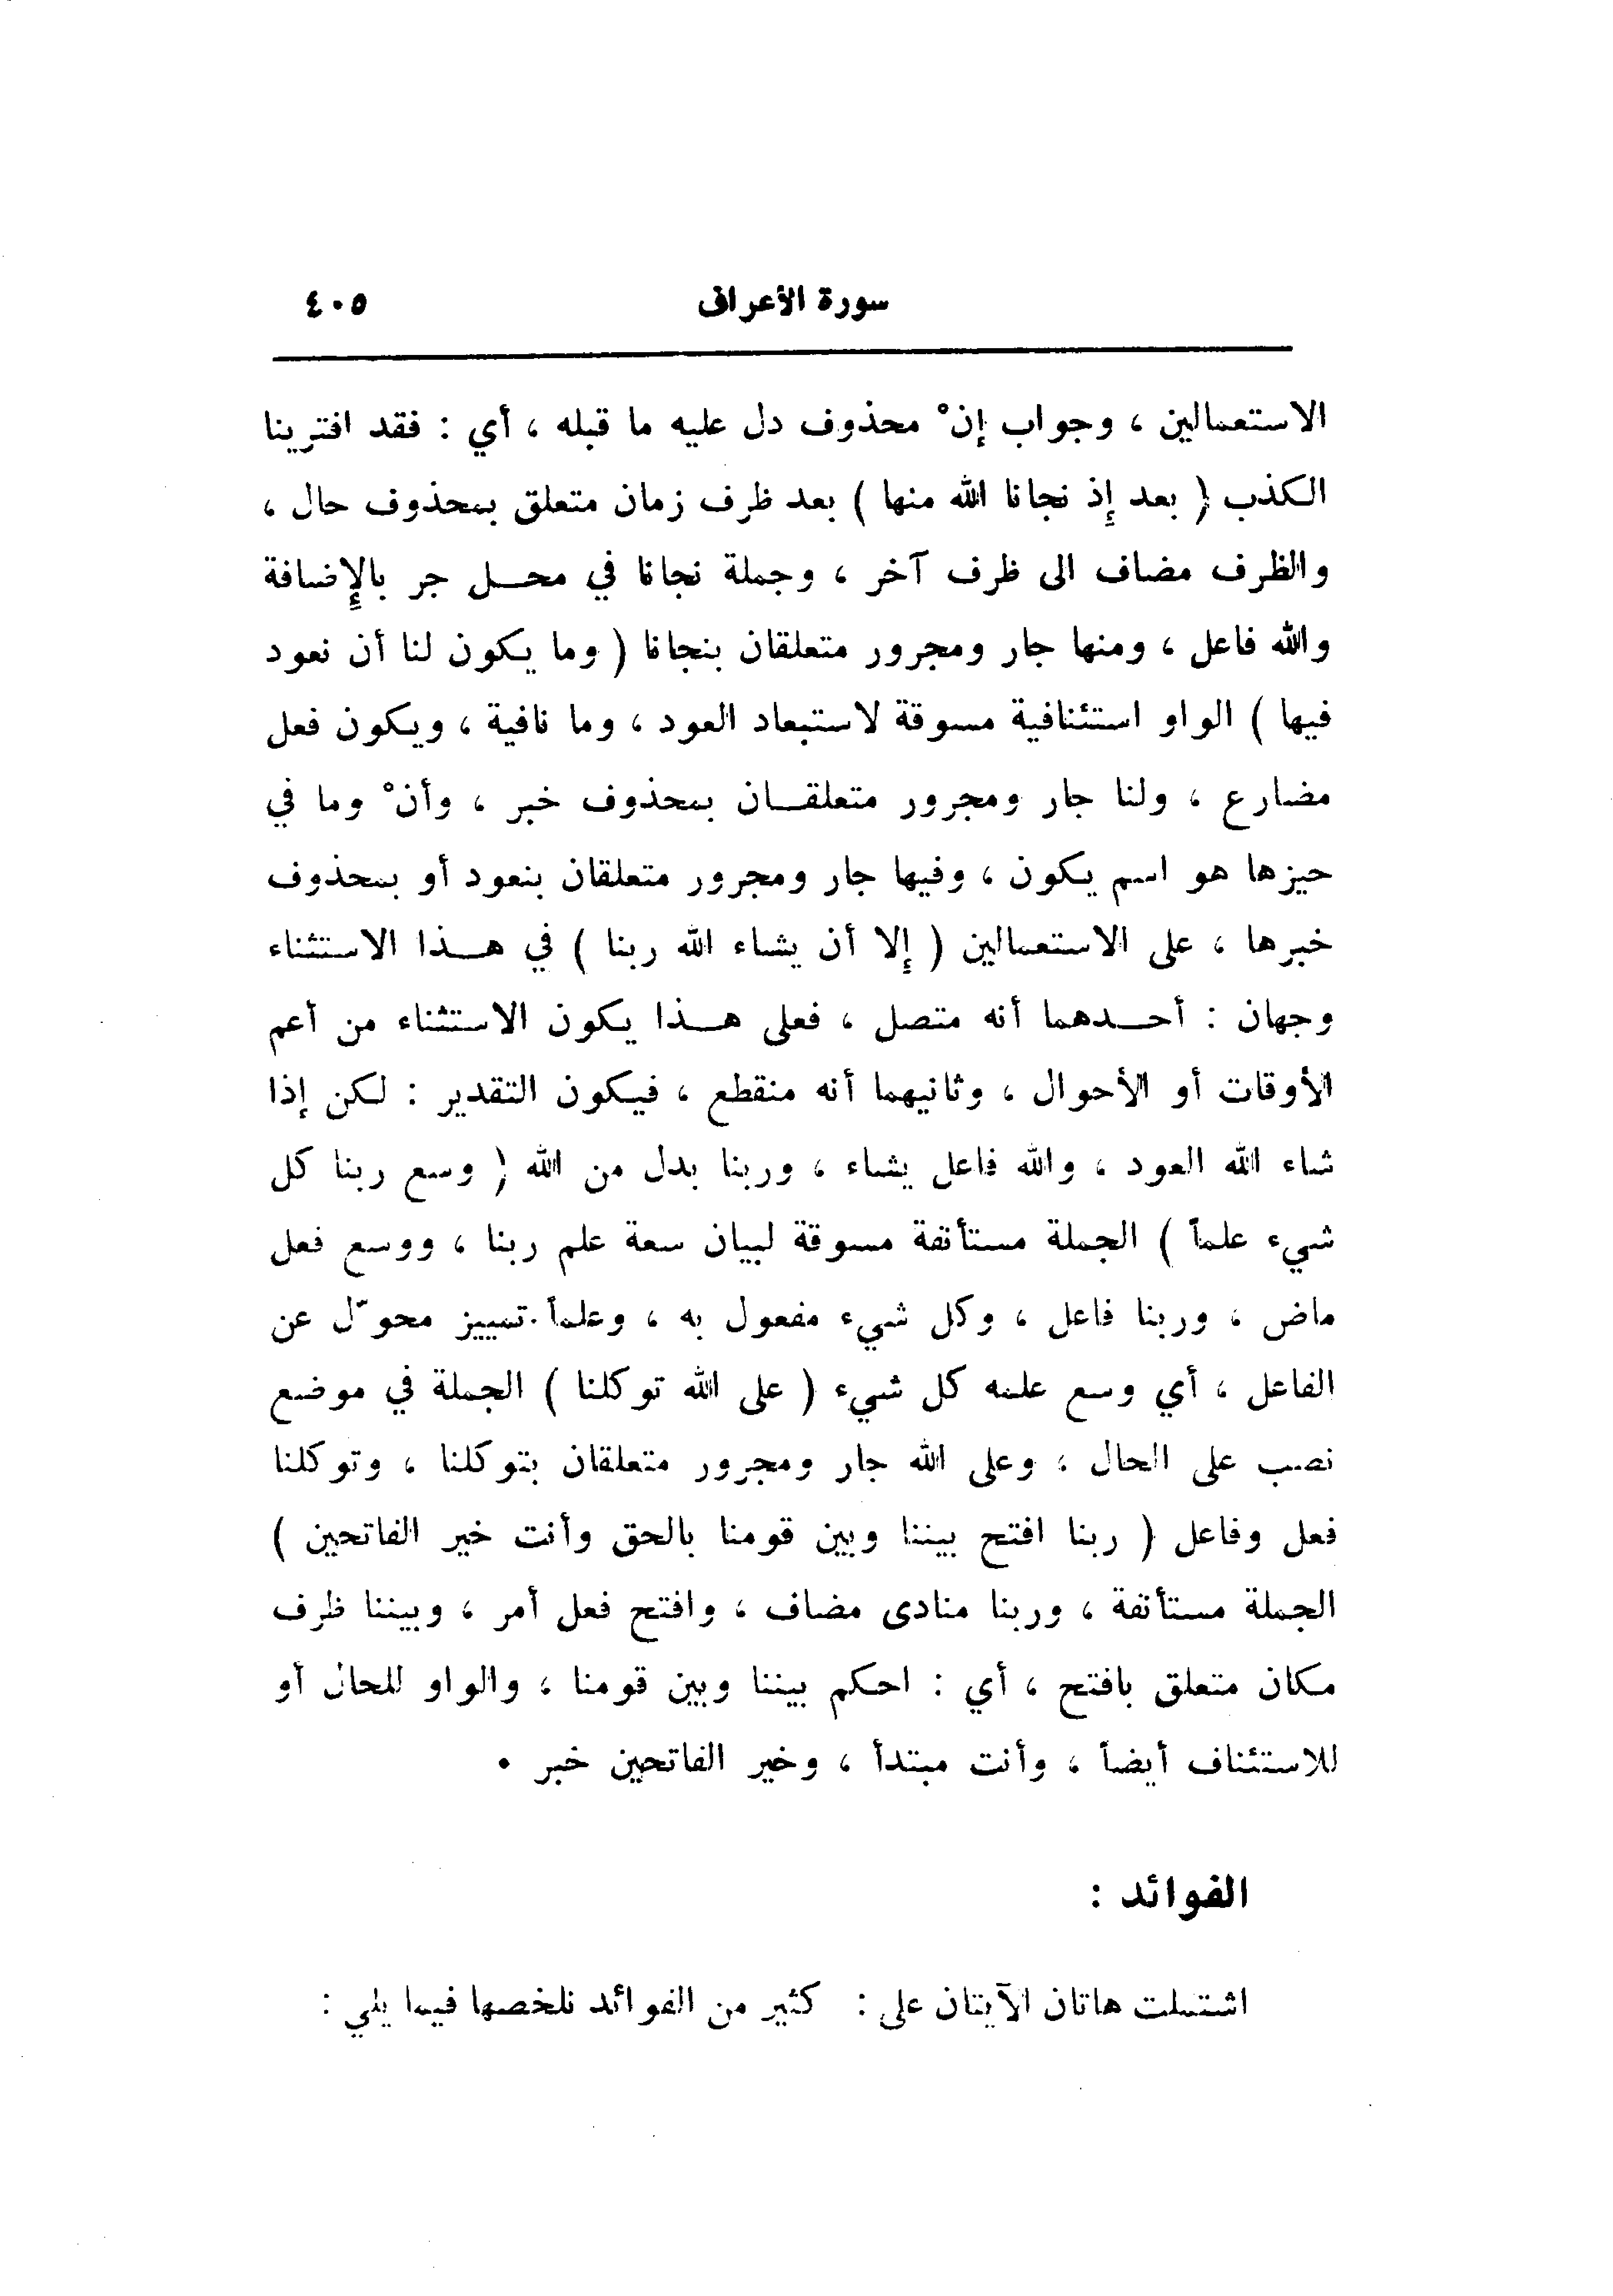 سورة الأعراف ٤٠٥
الاستعمالين ، وجواب إنْ محذوف دل عليه ما قبله ، أي : فقد افترينا
الكذب ( بعد إذ نجانا الله منها ) بعد ظرف زمان متعلق بمحذوف حال ،
والظرف مضاف الى ظرف آخر ، وجملة نجانا في محل جر بالإضافة
والله فاعل ، ومنها جار ومجرور متعلقان بنجانا ( وما يكون لنا أن نعود
فيها ) الواو استئنافية مسوقة لاستبعاد العود ، وما نافية ، ويكون فعل
مضارع ، ولنا جار ومجرور متعلقان بمحذوف خبر ، وأنْ وما في
حيزها هو اسم يكون ، وفيها جار ومجرور متعلقان بنعود أو بمحذوف
خبرها ، على الاستعمالين ( إلا أن يشاء الله ربنا ) في هذا الاستثناء
وجهان : أحدهما أنه متصل ، فعلى هذا يكون الاستثناء من أعم
الأوقات أو الأحوال ، وثانيهما أنه منقطع ، فيكون التقدير : لكن إذا
شاء الله العود ، والله فاعل يشاء ، وربنا بدل من الله ( وسع ربنا كل
شيء علماً ) الجملة مستأنفة مسوقة لبيان سعة علم ربنا ، ووسع فعل
ماض ، وربنا فاعل ، وكل شيء مفعول به ، وعلماً تمييز محوّل عن
الفاعل ، أي وسع علمه كل شيء ( على الله توكلنا ) الجملة في موضع
نصب على الحال ، وعلى الله جار ومجرور متعلقان بتوكلنا ، وتوكلنا
فعل وفاعل ( ربنا افتح بيننا وبين قومنا بالحق وأنت خير الفاتحين )
الجملة مستأنفة ، وربنا منادى مضاف ، وافتح فعل أمر ، وبيننا ظرف
مكان متعلق بافتح ، أي : احكم بيننا وبين قومنا ، والواو للحال أو
للاستئناف أيضاً ، وأنت مبتدأ ، وخير الفاتحين خبر .
الفوائد :
اشتملت هاتان الآيتان على : كثير من الفوائد نلخصها فيما يلي :